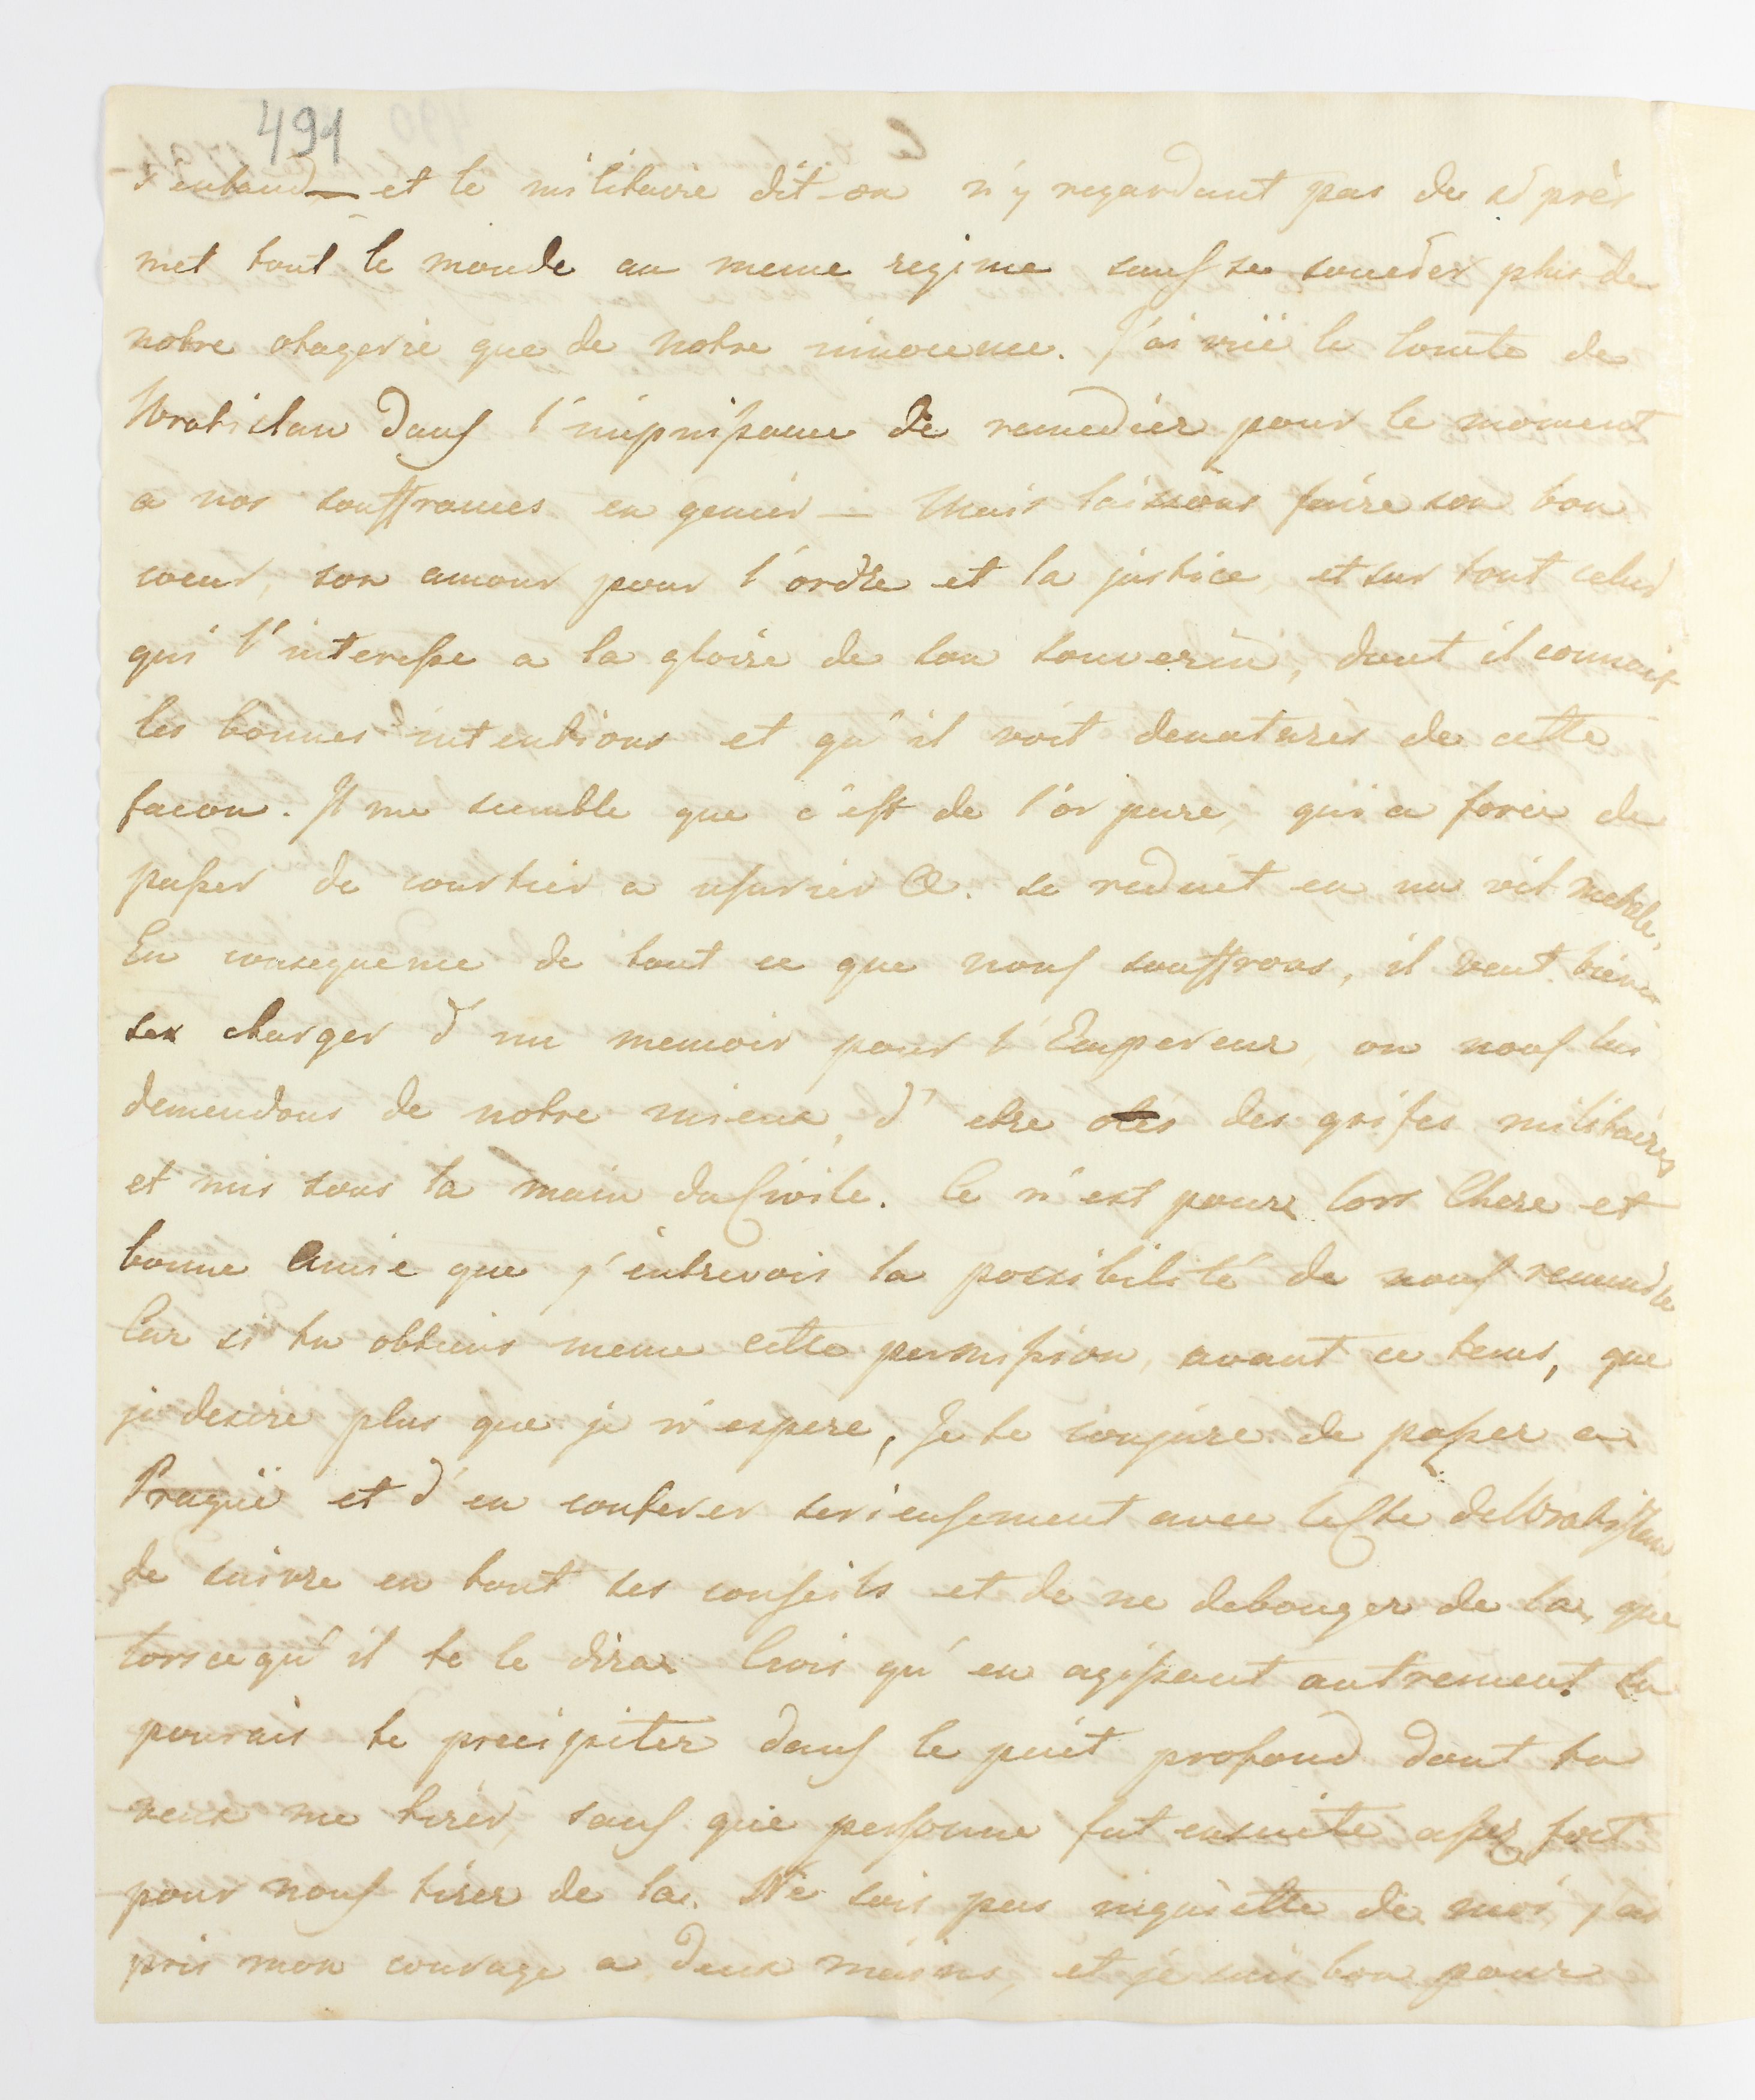 491
s'entend — et le militaire dit-on n'y regardant pas de si près
met tout le monde au meme regime sans se soucier plus de
notre otagerie que de notre innocence. J'ai vüe le Comte de
Wratislau dans l'impuissance de remedier pour le moment
a nos souffrances en gemir — Mais laissons faire son bon
coeur, son amour pour l'ordre et la justice, et sur tout celui
qui l'interesse a la gloire de son souverin, dont il connait
les bonnes intentions et qu'il voit denaturés de cette
facon. Il me semble que c'est de l'or pure, qui a force de
passer de courtier a usurier &. se reduit en un vil metale.
En consequence de tout ce que nous souffrons, il veut bien
se charger d'un memoir pour l'Empereur, ou nous lui
demendons de notre mieux, d'etre otés des grifes militaires
et mis sous la main du Civile. Ce n'est pour lors Chere et
bonne Amie que j'entrevois la possibilité de nous reunir
Car si tu obtiens meme cette permission, avant ce tems, que
je desire plus que je n'espere, Je te conjure de passer a
Pragüe et d'en conferer serieusement avec le Cte de Wratislau
de suivre en tout ses conseils et de ne debouger de la, que
lorsce qu'il te le dira. Crois qu'en agissant autrement tu
pourais te precipiter dans le puit profond dont tu
veux me tirer, sans que personne fut ensuite assez fort
pour nous tirer de la. Ne sois pas inquiette de moi, j'ai
pris mon courage a deux mains, et je suis bon pour